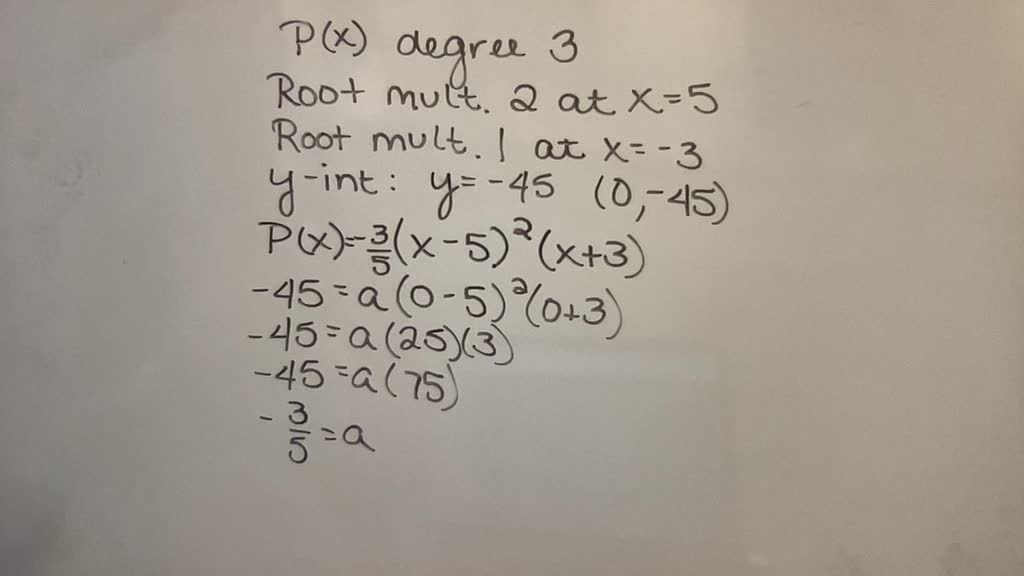 P(x) degree 3
Root mult. 2 at x=5
Root mult. 1 at x=-3
y-int: y=-45 (0,-45)
P(x)=-3/5(x-5)²(x+3)
-45=a(0-5)²(0+3)
-45=a(25)(3)
-45=a(75)
-3/5=a